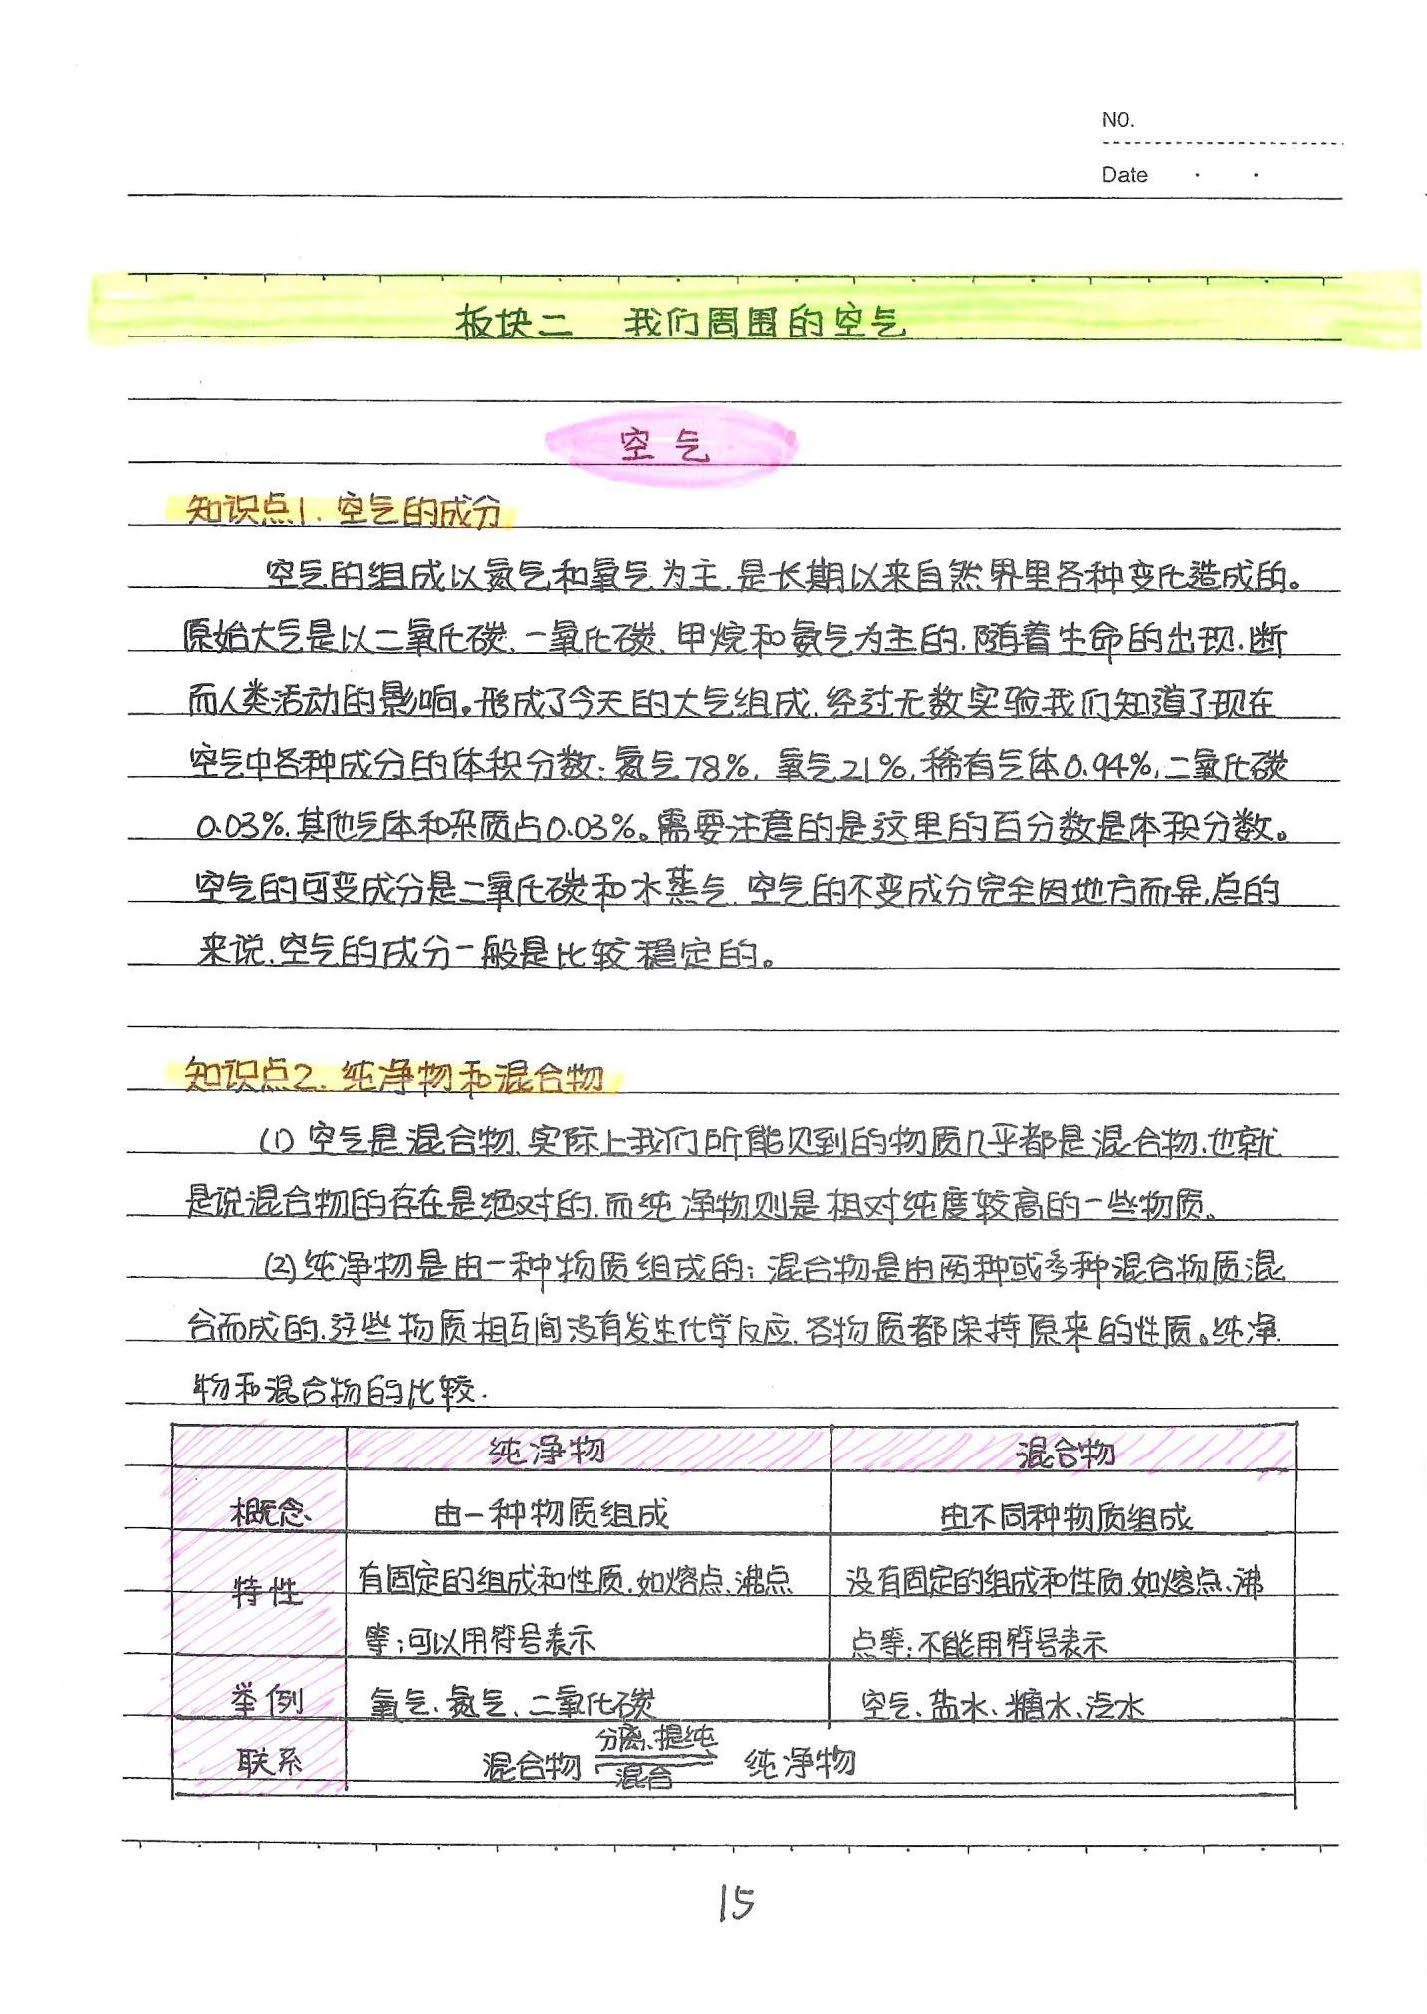 NO.
Date
板块二 我们周围的空气
空气
知识点1. 空气的成分
空气的组成以氮气和氧气为主.是长期以来自然界里各种变化造成的。
原始大气是以二氧化碳、一氧化碳、甲烷和氨气为主的.随着生命的出现.断
而人类活动的影响。形成了今天的大气组成.经过无数实验我们知道了现在
空气中各种成分的体积分数:氮气78%,氧气21%,稀有气体0.94%,二氧化碳
0.03%.其他气体和杂质占0.03%。需要注意的是这里的百分数是体积分数。
空气的可变成分是二氧化碳和水蒸气.空气的不变成分完全因地方而异.总的
来说.空气的成分一般是比较稳定的。
知识点2. 纯净物和混合物
(1) 空气是混合物.实际上我们所能见到的物质几乎都是混合物.也就
是说混合物的存在是绝对的.而纯净物则是相对纯度较高的一些物质。
(2) 纯净物是由一种物质组成的;混合物是由两种或多种混合物质混
合而成的.这些物质相互间没有发生化学反应.各物质都保持原来的性质。纯净
物和混合物的比较.
纯净物 混合物
概念 由一种物质组成 由不同种物质组成
特性 有固定的组成和性质.如熔点、沸点 没有固定的组成和性质.如熔点、沸
等;可以用符号表示 点等;不能用符号表示
举例 氧气、氮气、二氧化碳 空气、盐水、糖水、汽水
分离、提纯
联系 混合物 ⇌ 纯净物
混合
15